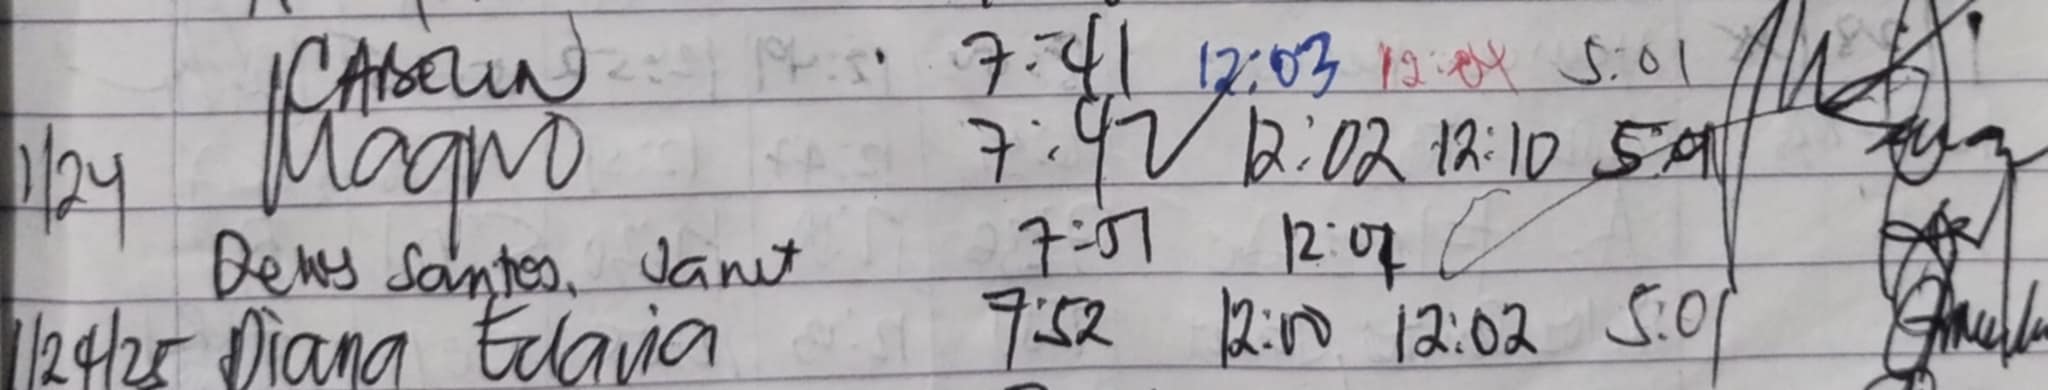 7:41 12:03 12:04 5:01
1/24 Magno 7:42 12:02 12:10
Delos Santos, Janet 7:51 12:07
1/24/25 Diana Edavia 7:52 12:00 12:02 5:01